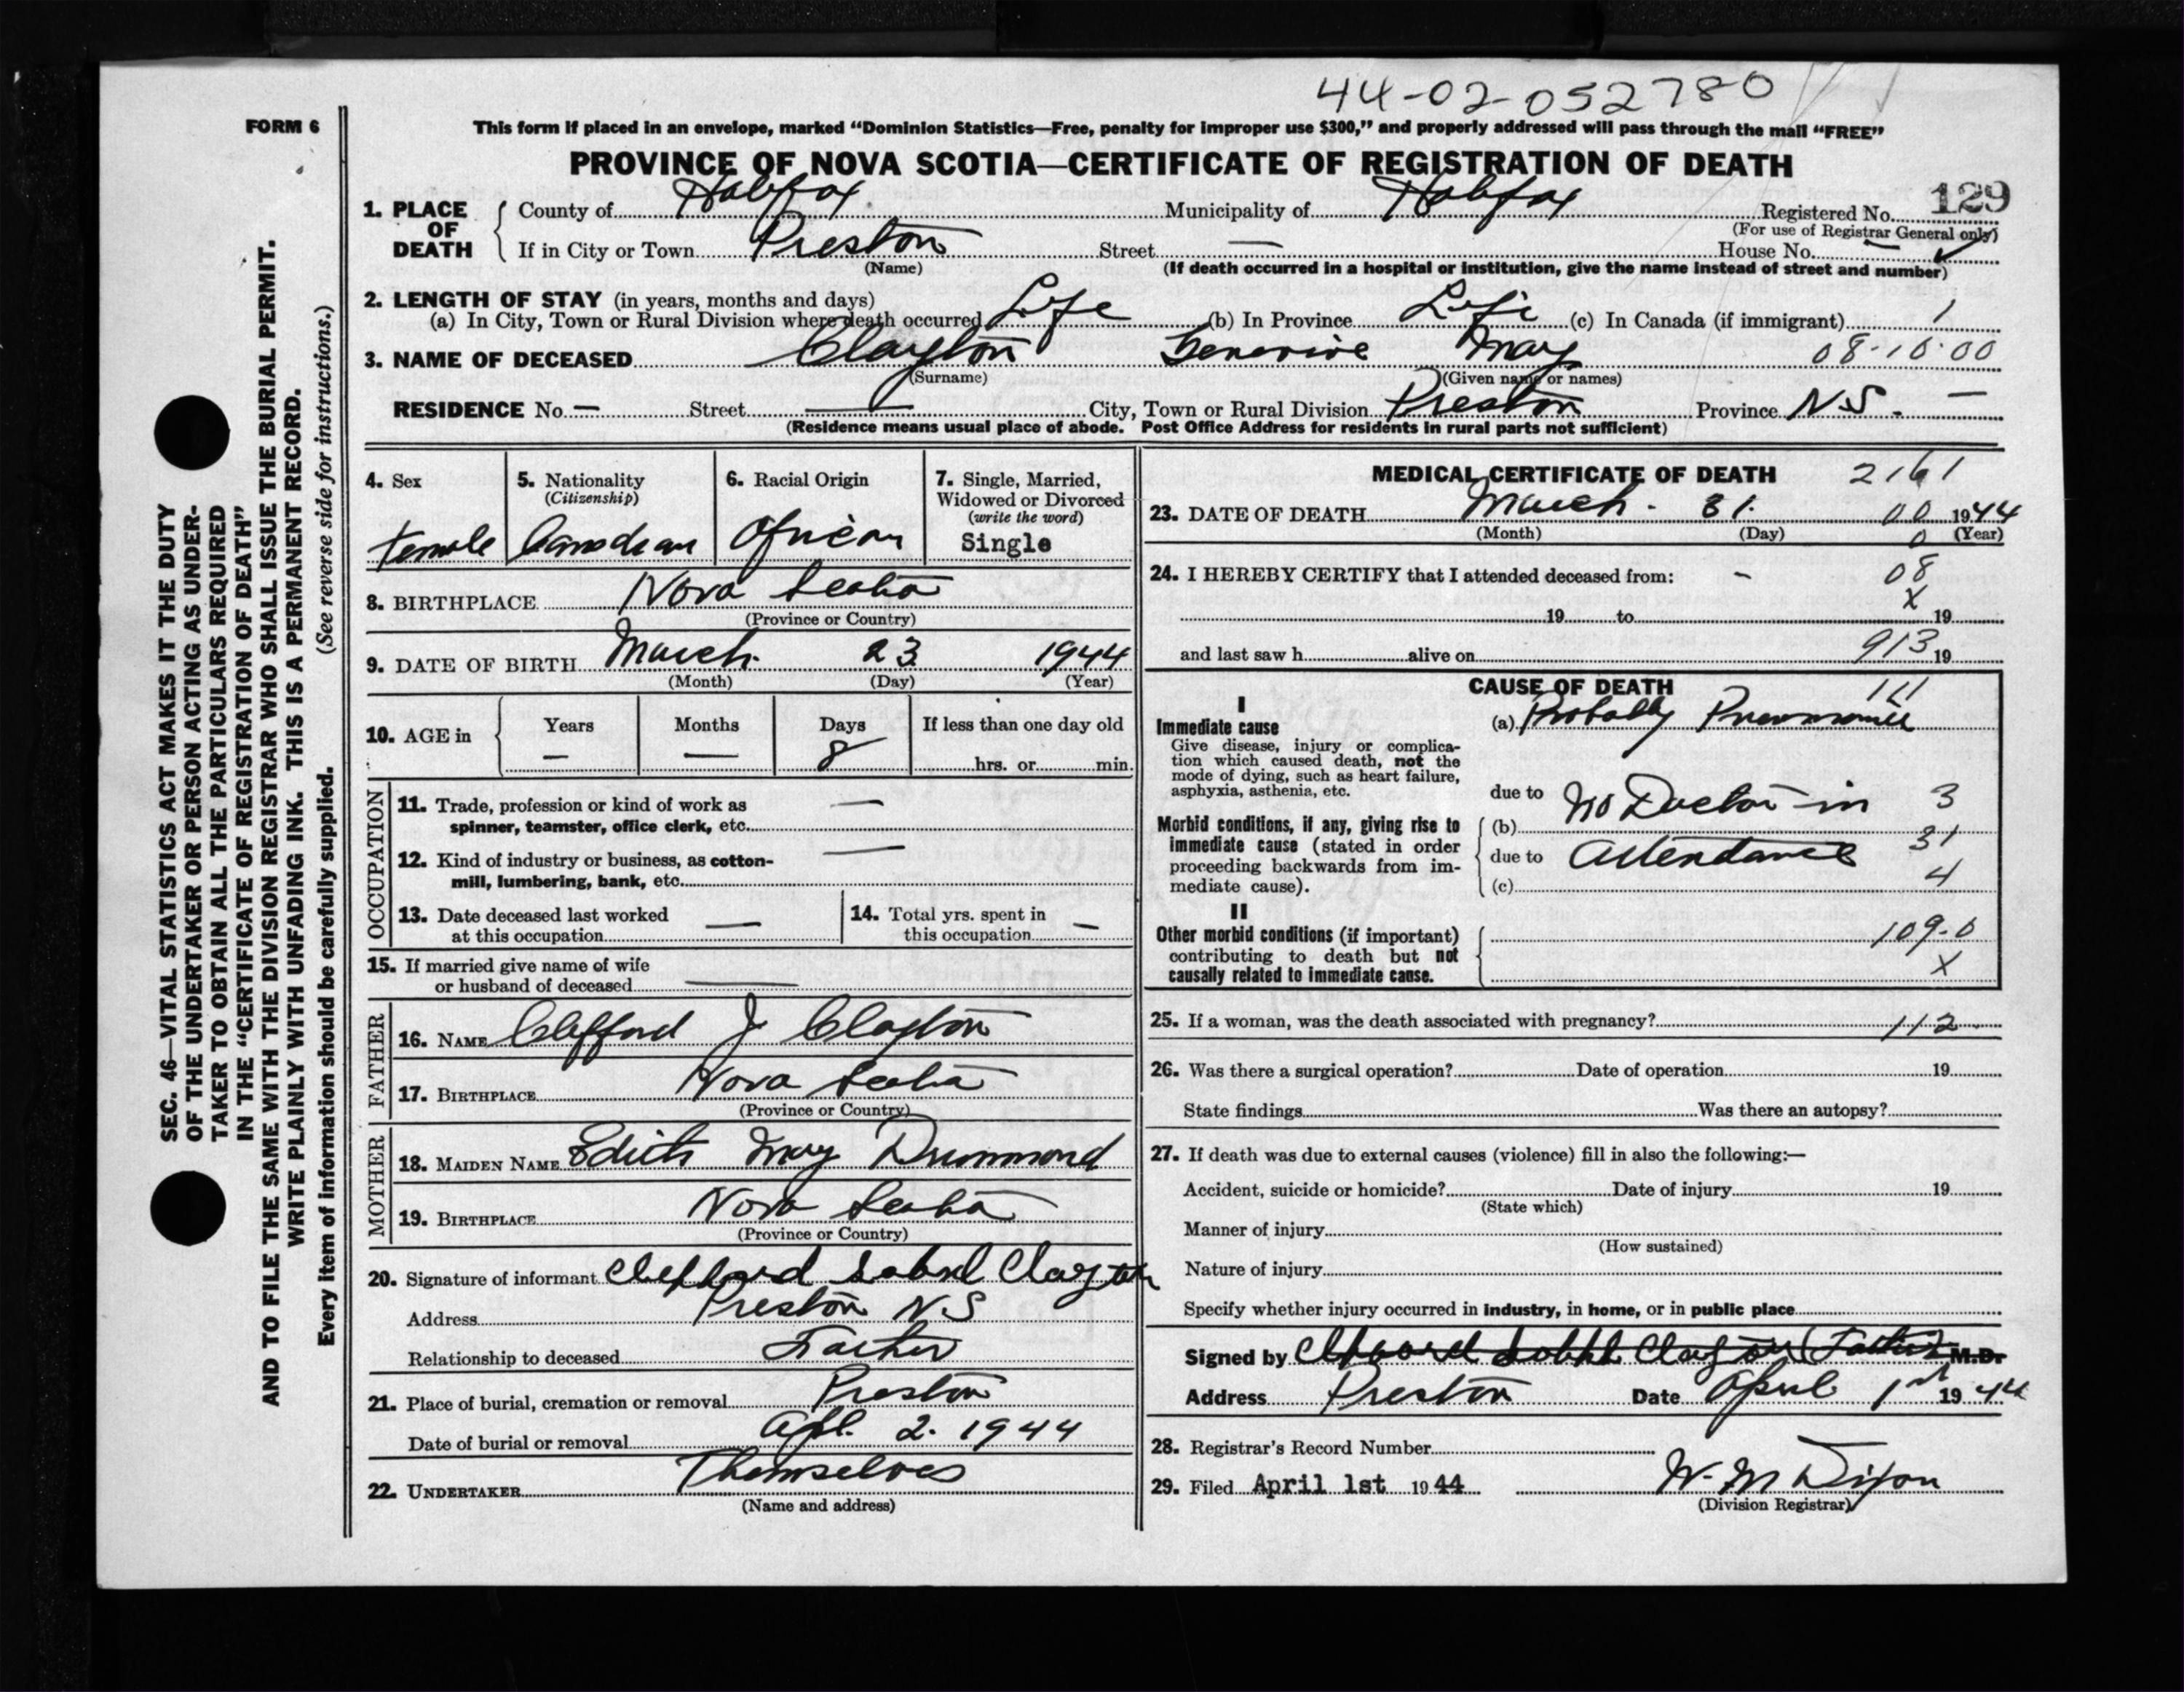 44-02-052780
FORM 6
This form if placed in an envelope, marked “Dominion Statistics—Free, penalty for improper use $300,” and properly addressed will pass through the mail “FREE”
PROVINCE OF NOVA SCOTIA—CERTIFICATE OF REGISTRATION OF DEATH
1. PLACE OF DEATH
County of Halifax Municipality of Halifax Registered No. 129
(For use of Registrar General only)
If in City or Town Preston Street — House No. —
(Name) (If death occurred in a hospital or institution, give the name instead of street and number)
2. LENGTH OF STAY (in years, months and days)
(a) In City, Town or Rural Division where death occurred Life (b) In Province Life (c) In Canada (if immigrant) 1
3. NAME OF DECEASED Clayton Genevive May 08-10-00
(Surname) (Given name or names)
RESIDENCE No. — Street — City, Town or Rural Division Preston Province N.S. —
(Residence means usual place of abode. Post Office Address for residents in rural parts not sufficient)
4. Sex 5. Nationality 6. Racial Origin 7. Single, Married,
(Citizenship) Widowed or Divorced
(write the word)
Female Canadian African Single
8. BIRTHPLACE Nova Scotia
(Province or Country)
9. DATE OF BIRTH March 23 1944
(Month) (Day) (Year)
10. AGE in Years Months Days If less than one day old
— — 8 hrs. or min.
OCCUPATION
11. Trade, profession or kind of work as —
spinner, teamster, office clerk, etc.
12. Kind of industry or business, as cotton- —
mill, lumbering, bank, etc.
13. Date deceased last worked 14. Total yrs. spent in
at this occupation — this occupation —
15. If married give name of wife
or husband of deceased —
FATHER
16. NAME Clifford J Clayton
17. BIRTHPLACE Nova Scotia
(Province or Country)
MOTHER
18. MAIDEN NAME Edith May Drummond
19. BIRTHPLACE Nova Scotia
(Province or Country)
20. Signature of informant Clifford Clayton
Address Preston N S
Relationship to deceased Father
21. Place of burial, cremation or removal Preston
Date of burial or removal Apl. 2. 1944
22. UNDERTAKER Themselves
(Name and address)
MEDICAL CERTIFICATE OF DEATH 2161
23. DATE OF DEATH March 31. 00 1944
(Month) (Day) 0 (Year)
24. I HEREBY CERTIFY that I attended deceased from: — 08
X
19 to 19
and last saw h alive on 913 19
CAUSE OF DEATH 111
I
Immediate cause (a) Probally Pneumonia
Give disease, injury or complica-
tion which caused death, not the
mode of dying, such as heart failure,
asphyxia, asthenia, etc.
due to No Doctor in 3
Morbid conditions, if any, giving rise to (b)
immediate cause (stated in order 31
proceeding backwards from im- due to Attendance
mediate cause). (c) 4
II
Other morbid conditions (if important) 109-0
contributing to death but not
causally related to immediate cause. X
25. If a woman, was the death associated with pregnancy? 112
26. Was there a surgical operation? Date of operation 19
State findings Was there an autopsy?
27. If death was due to external causes (violence) fill in also the following:—
Accident, suicide or homicide? Date of injury 19
(State which)
Manner of injury
(How sustained)
Nature of injury
Specify whether injury occurred in industry, in home, or in public place
Signed by Clayton (Father) M.D.
Address Preston Date April 1st 1944
28. Registrar's Record Number
29. Filed April 1st 1944 W. M Dixon
(Division Registrar)
SEC. 46—VITAL STATISTICS ACT MAKES IT THE DUTY
OF THE UNDERTAKER OR PERSON ACTING AS UNDER-
TAKER TO OBTAIN ALL THE PARTICULARS REQUIRED
IN THE “CERTIFICATE OF REGISTRATION OF DEATH”
AND TO FILE THE SAME WITH THE DIVISION REGISTRAR WHO SHALL ISSUE THE BURIAL PERMIT.
WRITE PLAINLY WITH UNFADING INK. THIS IS A PERMANENT RECORD.
Every item of information should be carefully supplied. (See reverse side for instructions.)